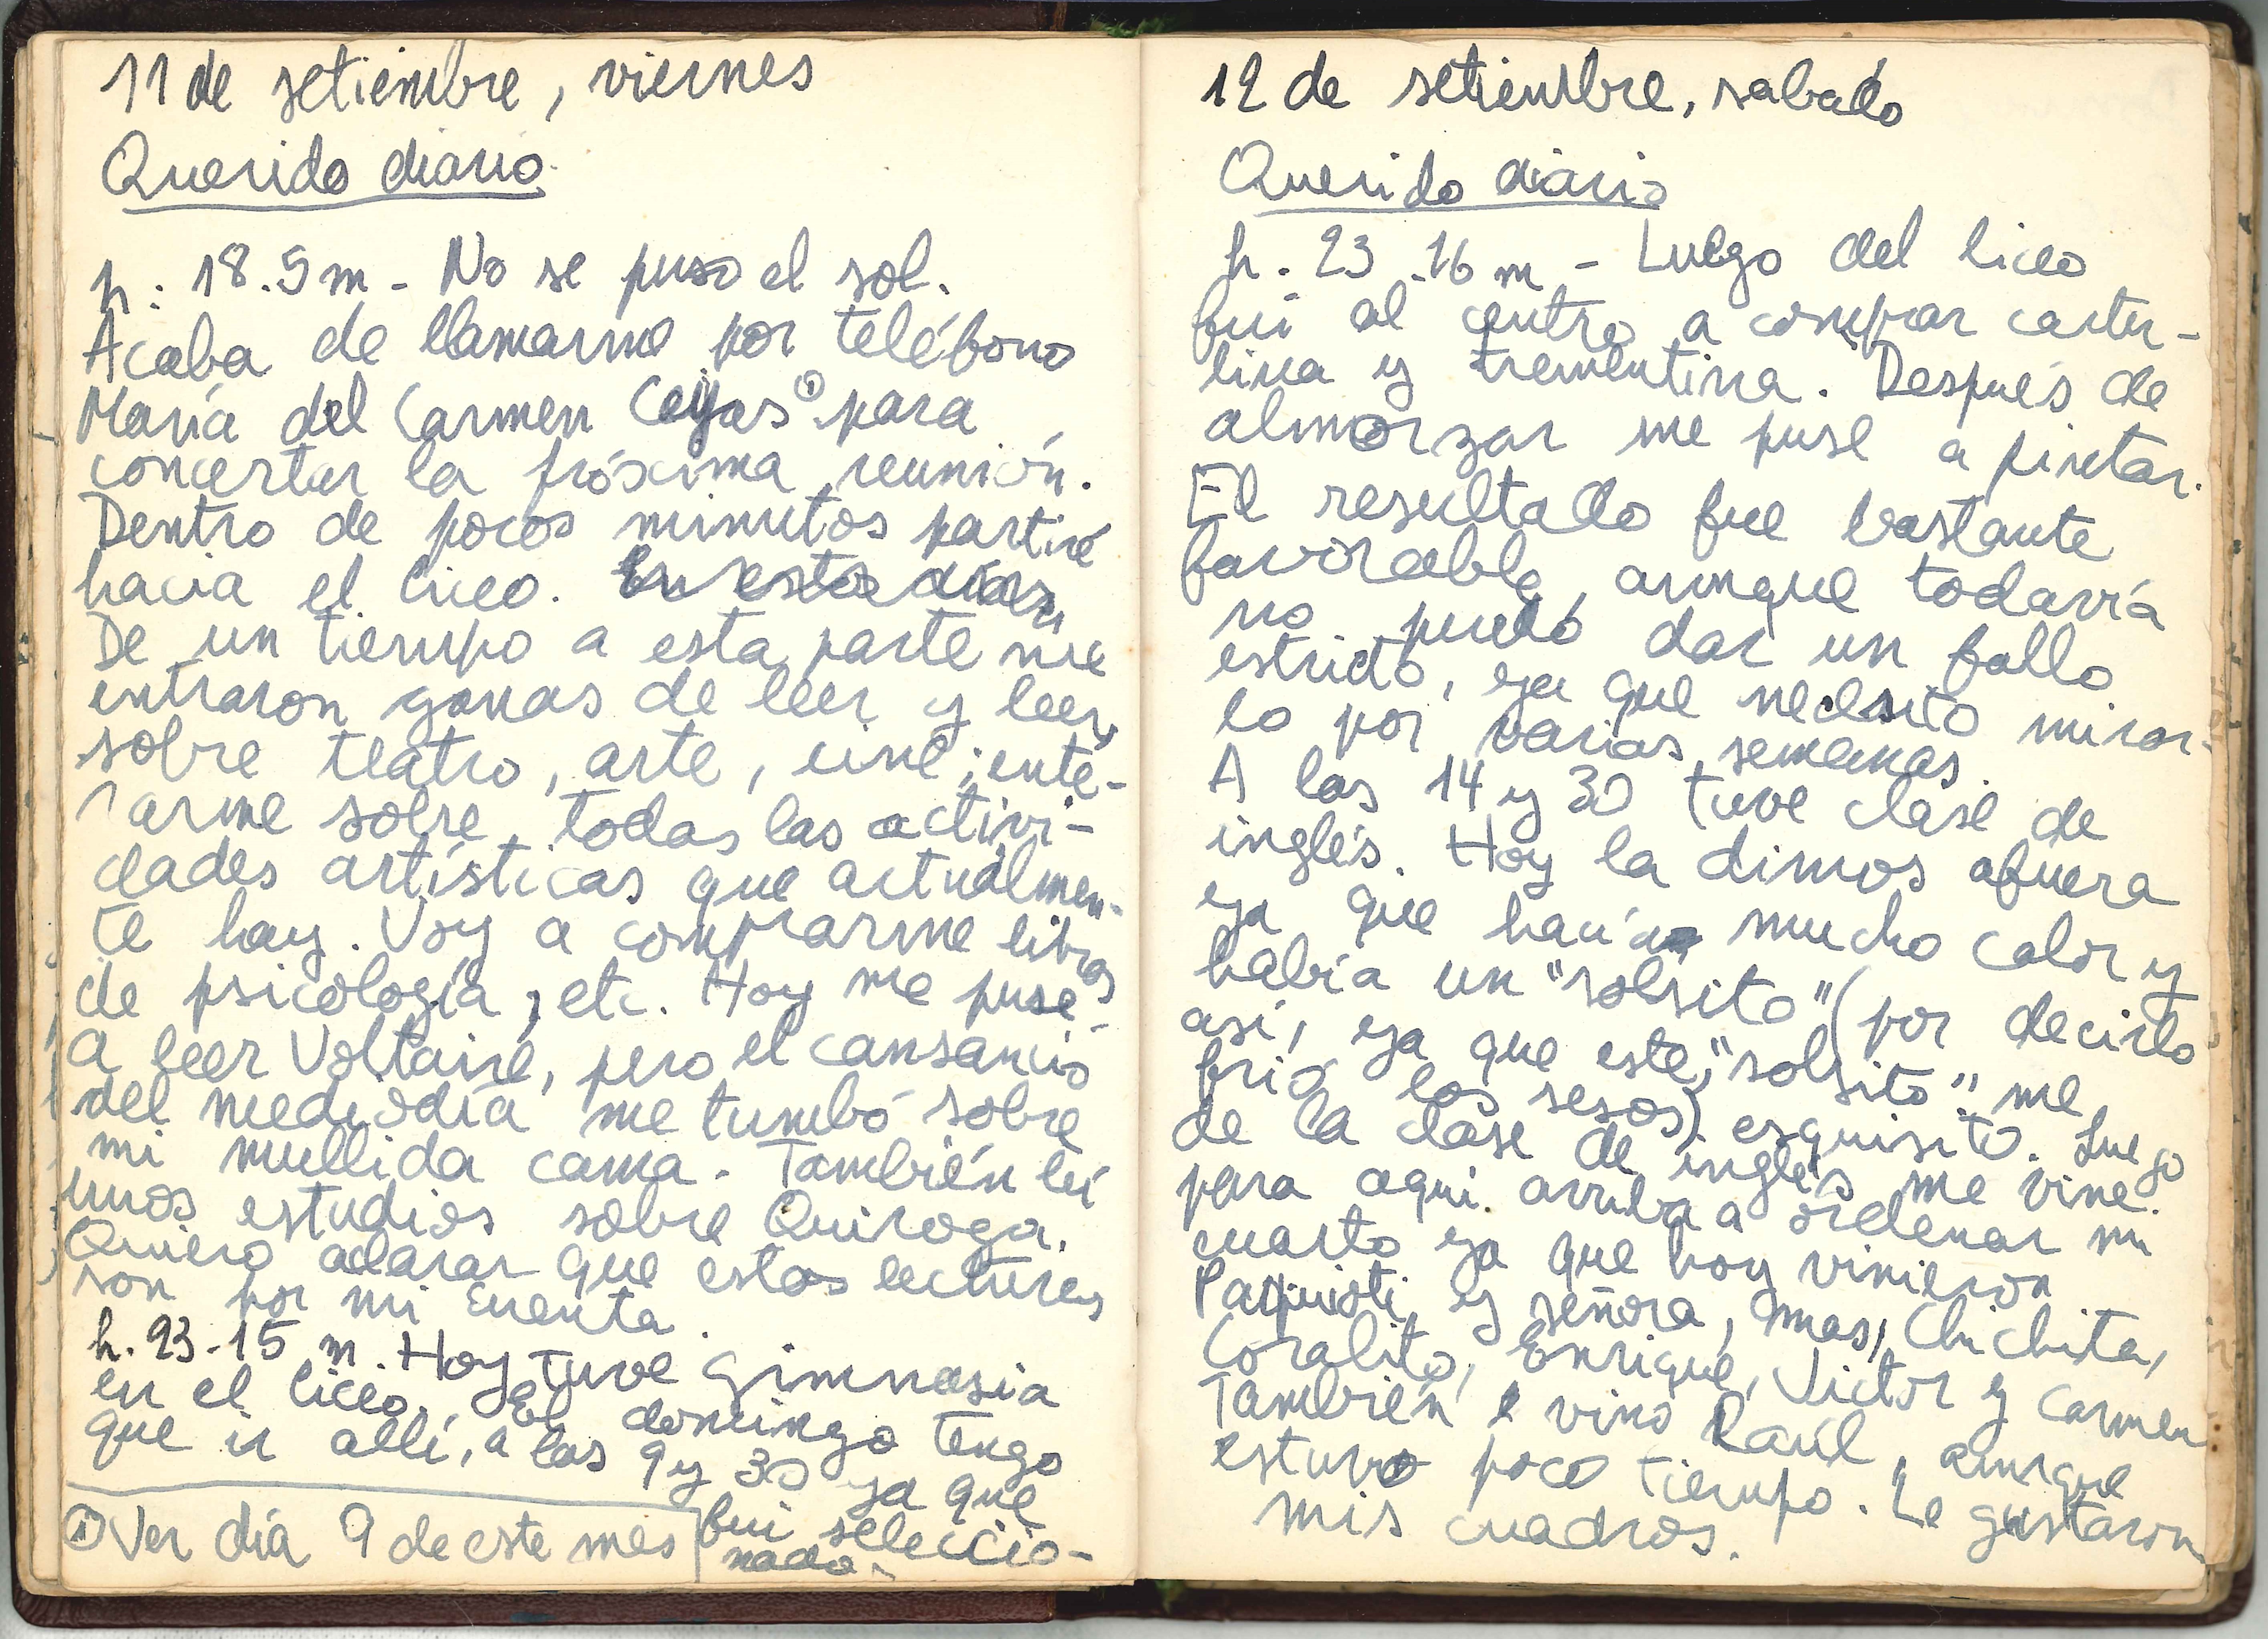 11 de setiembre, viernes
Querido diario.
h: 18.5 m - No se puso el sol.
Acaba de llamarme por teléfono
María del Carmen Ceijas ① para
concertar la próxima reunión.
Dentro de pocos minutos partiré
hacia el liceo. En estos días,
De un tiempo a esta parte me
entraron ganas de leer y leer,
sobre teatro, arte, cine; ente-
rarme sobre todas las activi-
dades artísticas que actualmen-
te hay. Voy a comprarme libros
de psicología, etc. Hoy me puse
a leer Voltaire, pero el cansancio
del mediodía me tumbó sobre
mi mullida cama. También leí
unos estudios sobre Quiroga.
Quiero aclarar que estas lecturas
son por mi cuenta.
h. 23.15 m. Hoy tuve gimnasia
en el liceo. El domingo tengo
que ir allí, a las 9 y 30 ya que
fui seleccio-
nado.
① Ver día 9 de este mes
12 de setiembre, sabado
Querido diario
h. 23.16 m - Luego del liceo
fui al centro a comprar cartu-
lina y trementina. Después de
almorzar me puse a pintar.
El resultado fue bastante
favorable, aunque todavía
no puedo dar un fallo
estricto, ya que necesito mirar-
lo por varias semanas.
A las 14 y 30 tuve clase de
inglés. Hoy la dimos afuera
ya que hacía mucho calor y
había un "solsito" (por decirlo
así, ya que este, "solsito" me
frió los sesos) esquisito. Luego
de la clase de inglés me vine
para aquí arriba a ordenar mi
cuarto ya que hoy vinieron
y señora, mas, Chichita,
Coralito, Enrique, Victor y Carmen
También vino Raúl, aunque
estuvo poco tiempo. Le gustaron
mis cuadros.